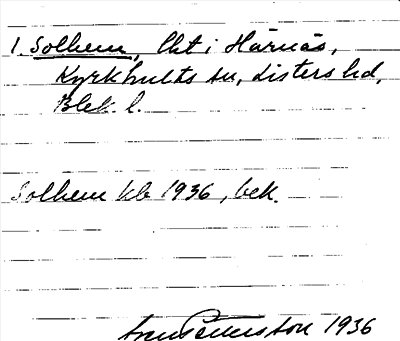 1. Solhem, lht i Härnäs,
Kyrkhults sn, Listers hd,
Blek. l.
Solhem kb 1936, bek.
1936